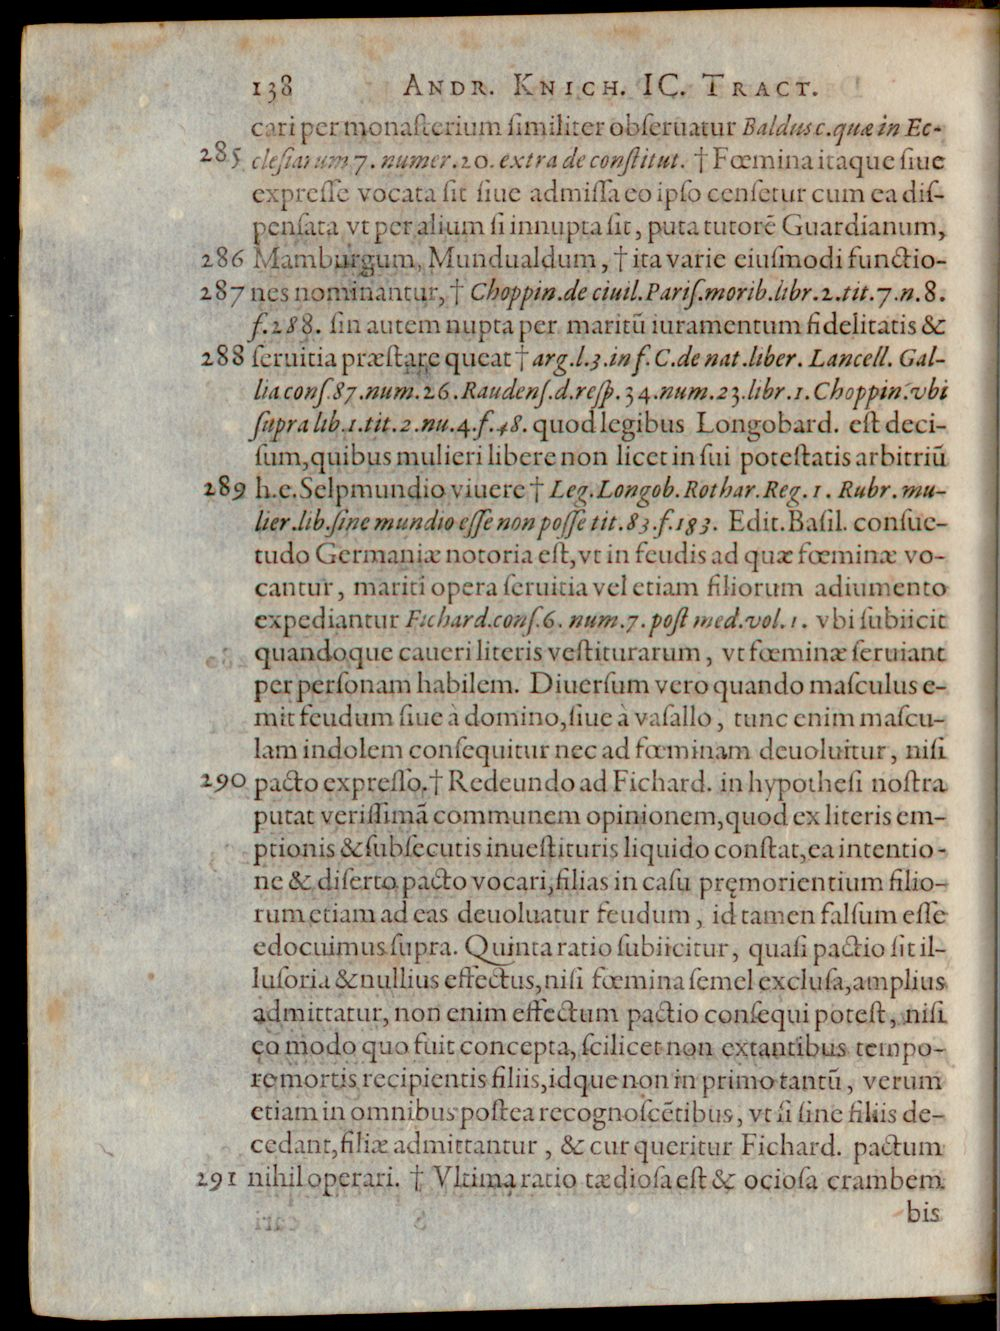 138 ANDR. KNICH. IC. TRACT.
cari per monaſterium ſimiliter obſeruatur Baldus c. quæ in Ec-
285 cleſiarum 7. numer. 20. extra de conſtitut. † Fœmina itaque ſiue
expreſſe vocata ſit ſiue admiſſa eo ipſo cenſetur cum ea diſ-
penſata vt per alium ſi innupta ſit, puta tutorē Guardianum,
286 Mamburgum, Mundualdum, † ita varie eiuſmodi functio-
287 nes nominantur, † Choppin. de ciuil. Pariſ. morib. libr. 2. tit. 7. n. 8.
f. 288. ſin autem nupta per maritū iuramentum fidelitatis &
288 ſeruitia præſtare queat † arg. l. 3. in f. C. de nat. liber. Lancell. Gal-
lia conſ. 87. num. 26. Raudenſ. d. reſp. 34. num. 23. libr. 1. Choppin. vbi
ſupra lib. 1. tit. 2. nu. 4. f. 48. quod legibus Longobard. eſt deci-
ſum, quibus mulieri libere non licet in ſui poteſtatis arbitriū
289 h. e. Selpmundio viuere † Leg. Longob. Rothar. Reg. 1. Rubr. mu-
lier. lib. ſine mundio eſſe non poſſe tit. 83. f. 183. Edit. Baſil. conſue-
tudo Germaniæ notoria eſt, vt in feudis ad quæ fœminæ vo-
cantur, mariti opera ſeruitia vel etiam filiorum adiumento
expediantur Fichard. conſ. 6. num. 7. poſt med. vol. 1. vbi ſubiicit
quandoque caueri literis veſtiturarum, vt fœminæ ſeruiant
per perſonam habilem. Diuerſum vero quando maſculus e-
mit feudum ſiue à domino, ſiue à vaſallo, tunc enim maſcu-
lam indolem conſequitur nec ad fœminam deuoluitur, niſi
290 pacto expreſſo. † Redeundo ad Fichard. in hypotheſi noſtra
putat veriſſimā communem opinionem, quod ex literis em-
ptionis & ſubſecutis inueſtituris liquido conſtat, ea intentio-
ne & diſerto pacto vocari, filias in caſu pręmorientium filio-
rum etiam ad eas deuoluatur feudum, id tamen falſum eſſe
edocuimus ſupra. Quinta ratio ſubiicitur, quaſi pactio ſit il-
luſoria & nullius effectus, niſi fœmina ſemel excluſa, amplius
admittatur, non enim effectum pactio conſequi poteſt, niſi
eo modo quo fuit concepta, ſcilicet non extantibus tempo-
re mortis recipientis filiis, idque non in primo tantū, verum
etiam in omnibus poſtea recognoſcētibus, vt ſi ſine filiis de-
cedant, filiæ admittantur, & cur queritur Fichard. pactum
291 nihil operari. † Vltima ratio tædioſa eſt & ocioſa crambem
bis